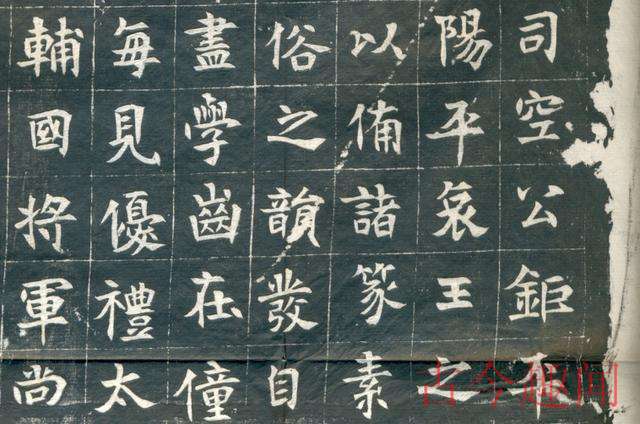 司空公鉅平
陽平哀王之
以備諸篆素
俗之韻發自
盡學齒在僮
每見優禮太
輔國將軍尚
古今趣闻